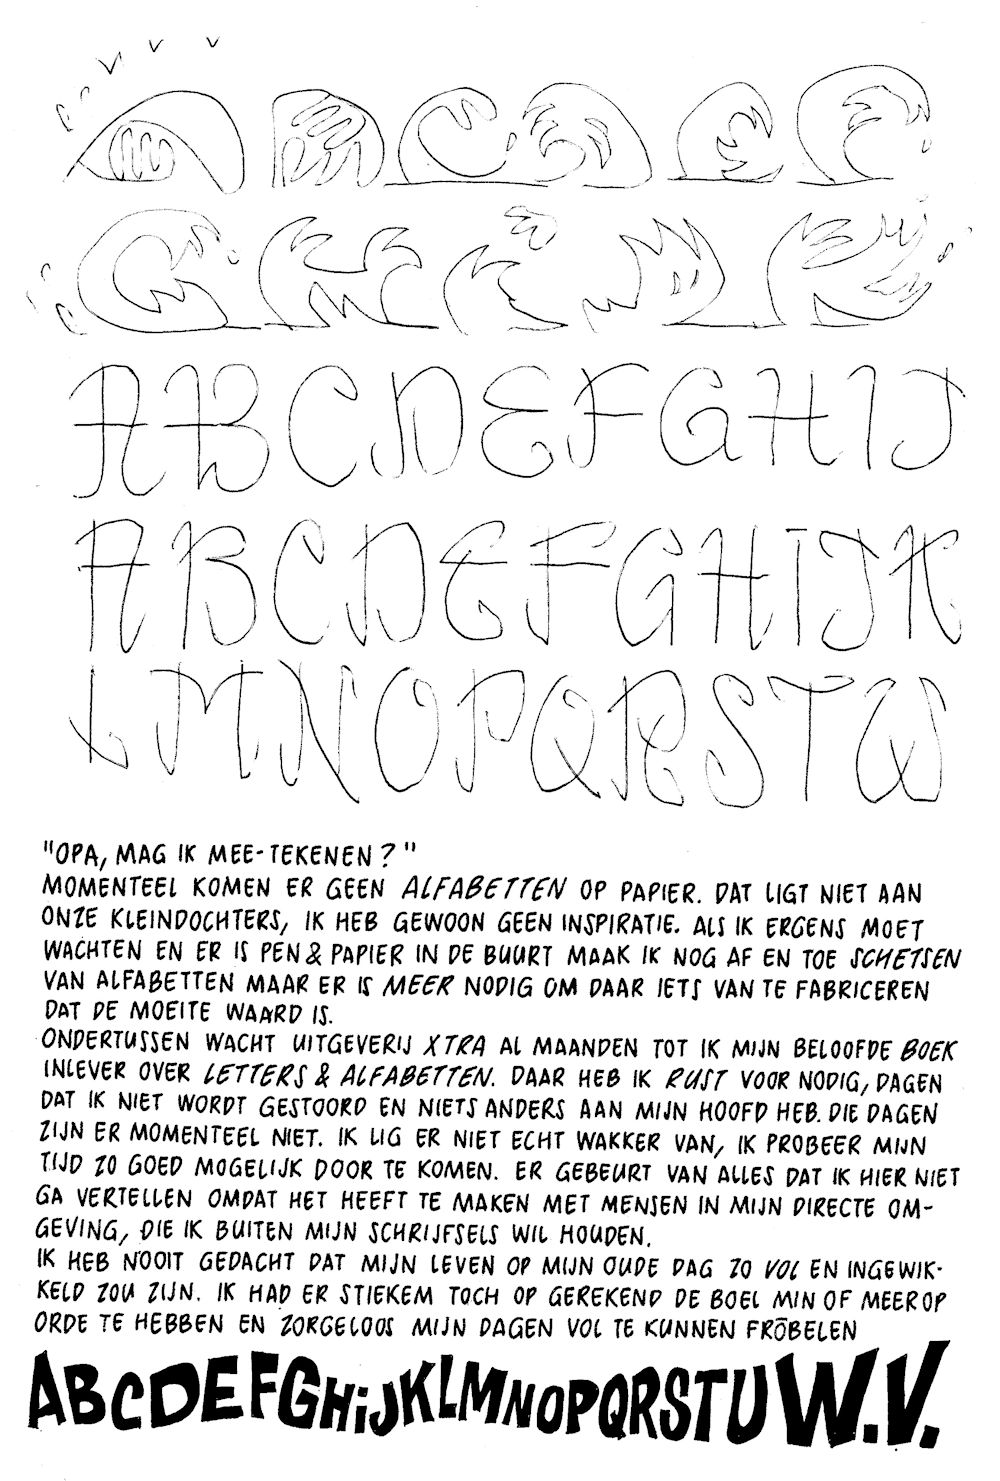 A B C D E F
G H I J K
A B C D E F G H I J
A B C D E F G H I J K
L M N O P Q R S T W
"OPA, MAG IK MEE-TEKENEN?"
MOMENTEEL KOMEN ER GEEN ALFABETTEN OP PAPIER. DAT LIGT NIET AAN
ONZE KLEINDOCHTERS, IK HEB GEWOON GEEN INSPIRATIE. ALS IK ERGENS MOET
WACHTEN EN ER IS PEN & PAPIER IN DE BUURT MAAK IK NOG AF EN TOE SCHETSEN
VAN ALFABETTEN MAAR ER IS MEER NODIG OM DAAR IETS VAN TE FABRICEREN
DAT DE MOEITE WAARD IS.
ONDERTUSSEN WACHT UITGEVERIJ XTRA AL MAANDEN TOT IK MIJN BELOOFDE BOEK
INLEVER OVER LETTERS & ALFABETTEN. DAAR HEB IK RUST VOOR NODIG, DAGEN
DAT IK NIET WORDT GESTOORD EN NIETS ANDERS AAN MIJN HOOFD HEB. DIE DAGEN
ZIJN ER MOMENTEEL NIET. IK LIG ER NIET ECHT WAKKER VAN, IK PROBEER MIJN
TIJD ZO GOED MOGELIJK DOOR TE KOMEN. ER GEBEURT VAN ALLES DAT IK HIER NIET
GA VERTELLEN OMDAT HET HEEFT TE MAKEN MET MENSEN IN MIJN DIRECTE OM-
GEVING, DIE IK BUITEN MIJN SCHRIJFSELS WIL HOUDEN.
IK HEB NOOIT GEDACHT DAT MIJN LEVEN OP MIJN OUDE DAG ZO VOL EN INGEWIK-
KELD ZOU ZIJN. IK HAD ER STIEKEM TOCH OP GEREKEND DE BOEL MIN OF MEER OP
ORDE TE HEBBEN EN ZORGELOOS MIJN DAGEN VOL TE KUNNEN FRÖBELEN
ABCDEFGHiJKLMNOPQRSTUW.V.